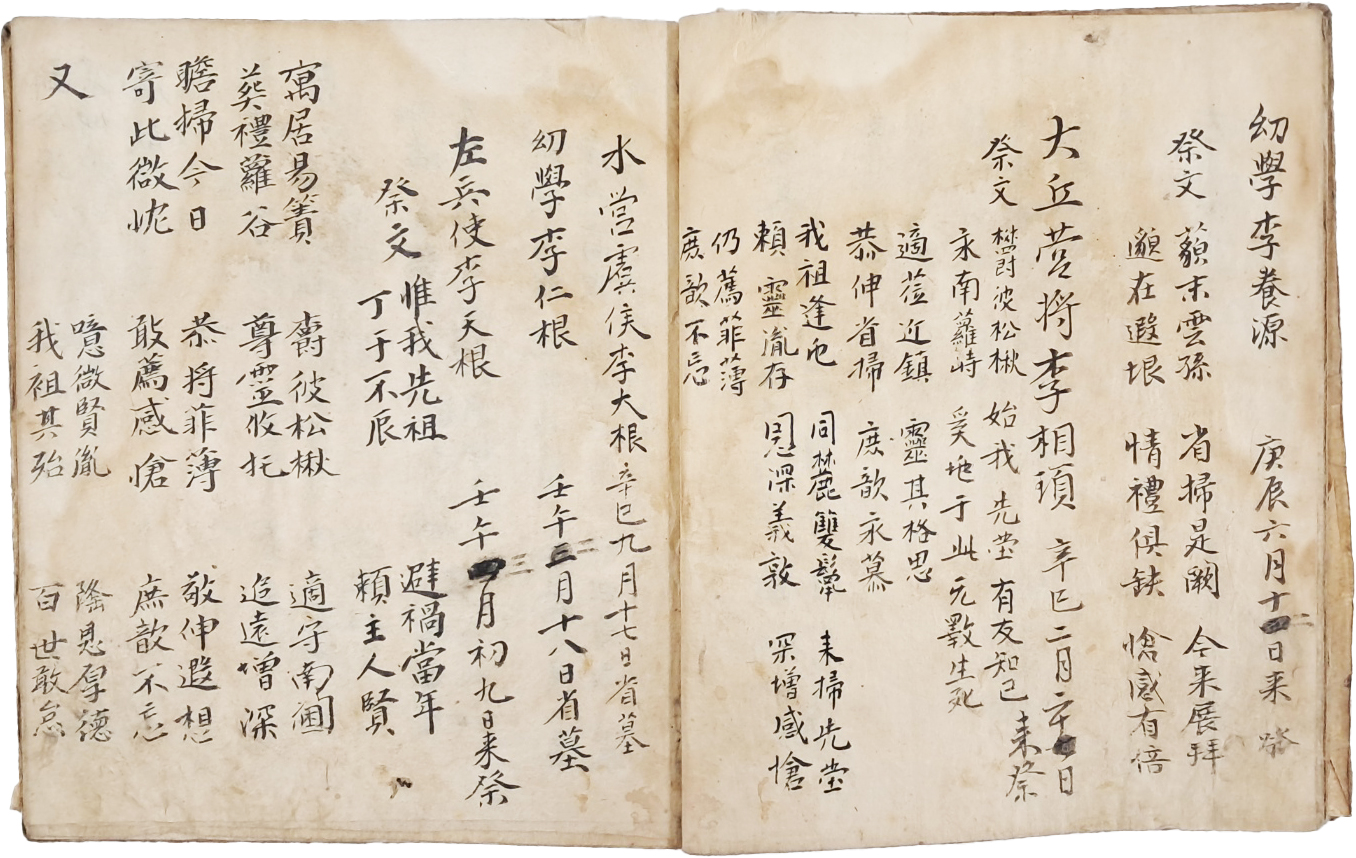 幼學李養源 庚辰六月十二日来祭
祭文 藐末雲孫 省掃是闕 今来展拜
邈在遐垠 情禮俱缺 愴感有倍
大丘营将李相項 辛巳二月日
来祭
祭文 欝彼松楸 始我先塋 有友知己
永南蘿峙 爰地于此 元斁生死
適莅近鎮 靈其格思
恭伸省掃 庶歆永慕
我祖逢厄 同麓雙壟 来掃先塋
頼靈胤存 恩深義敦 深增感愴
仍薦菲薄
庶歆不忘
水営虞侯李大根 辛巳九月十七日省墓
幼學李仁根 壬午三月十八日省墓
左兵使李天根 壬午三月初九日来祭
祭文 惟我先祖 避禍當年
丁于不辰 頼主人賢
寓居易簀 欝彼松楸 適守南圃
葬禮蘿谷 尊靈攸托 追遠增深
瞻掃今日 恭将菲薄 敬伸遐想
寄此微忱 敢薦感愴 庶歆不忘
又 噫微賢胤 隆恩厚德
我祖其殆 百世敢怠